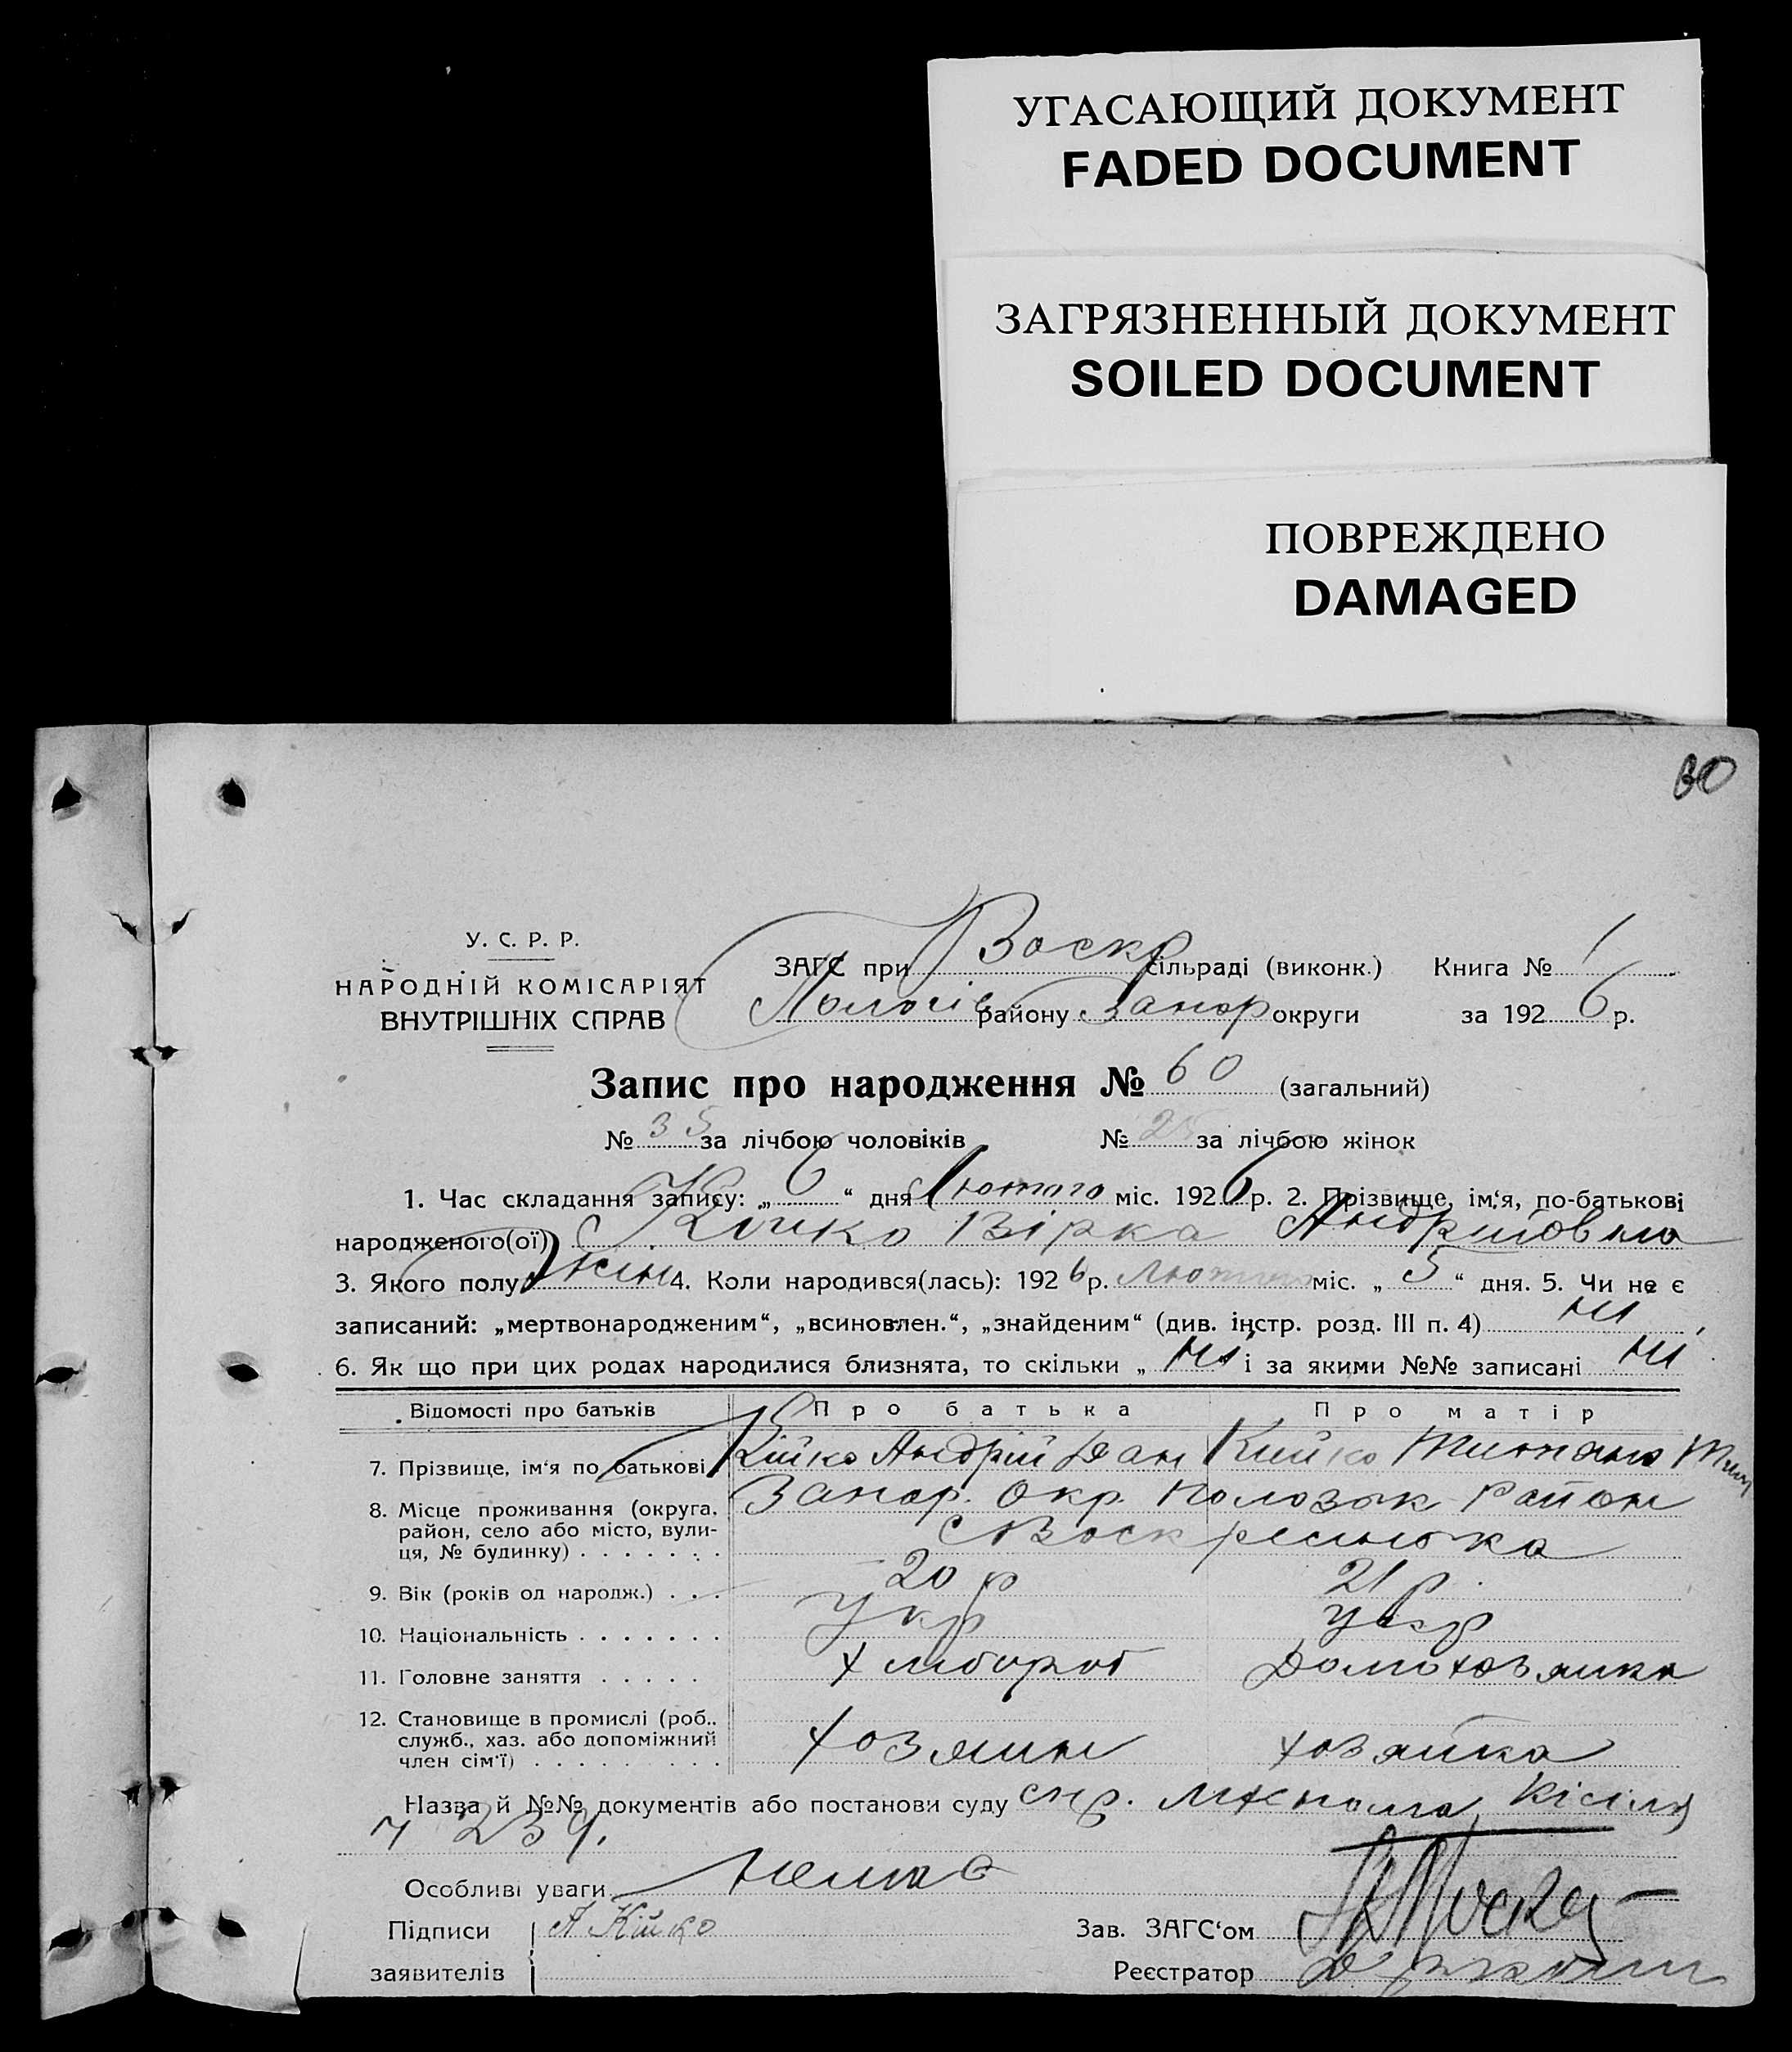 УГАСАЮЩИЙ ДОКУМЕНТ
FADED DOCUMENT
ЗАГРЯЗНЕННЫЙ ДОКУМЕНТ
SOILED DOCUMENT
ПОВРЕЖДЕНО
DAMAGED
30
У. С. Р. Р.
НАРОДНІЙ КОМІСАРІЯТ
ВНУТРІШНІХ СПРАВ
ЗАГС при Воскр сільраді (виконк.) Книга № 1
Пологів району Запор округи за 1926 р.
Запис про народження № 60 (загальний)
№ 35 за лічбою чоловіків № 25 за лічбою жінок
1. Час складання запису: „ 6 “ дня Лютого міс. 1926 р. 2. Прізвище, ім‘я, по-батькові
народженого(ої) Кійко Вірка Андріївна
3. Якого полу жін 4. Коли народився(лась): 1926 р. Лютого міс. „ 5 “ дня. 5. Чи не є
записаний: „мертвонародженим“, „всиновлен.“, „знайденим“ (див. інстр. розд. III п. 4) ні
6. Як що при цих родах народилися близнята, то скільки „ ні і за якими №№ записані ні
Відомості про батьків Про батька Про матір
7. Прізвище, ім‘я по батькові Кійко Андрій Кийко
8. Місце проживання (округа, район, село або місто, вулиця, № будинку) Запор. Окр. район
с Воскресенка
9. Вік (років од народж.) 20 р 21 р.
10. Національність укр укр
11. Головне заняття хлібороб Домохозяйка
12. Становище в промислі (роб., служб., хаз. або допоміжний член сім‘ї) хозяин хозяйка
Назва й №№ документів або постанови суду спр.
239.
Особливі уваги немає
Підписи А Кійко Зав. ЗАГС‘ом
заявителів Реєстратор